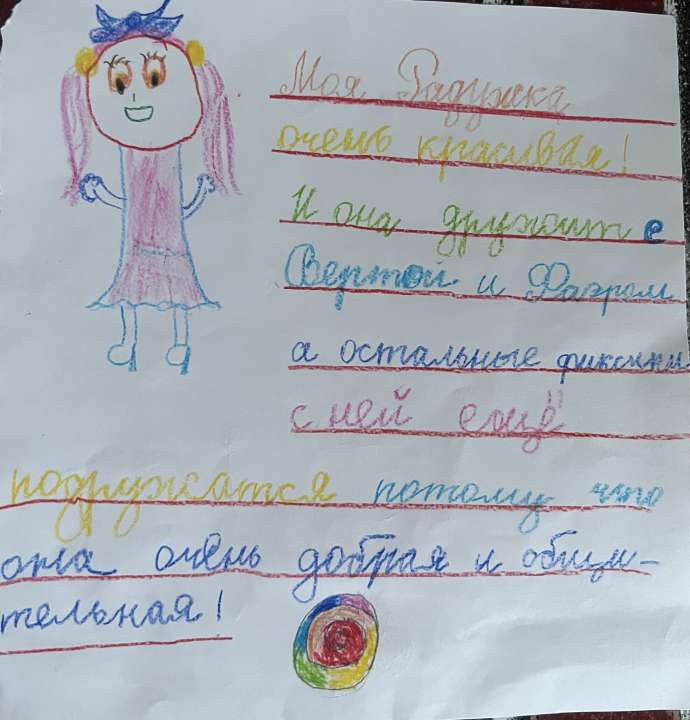 Моя Радужка
очень красивая!
И она дружит с
Вертой и Фаэром
а остальные фиксики
с ней ещё
подружатся потому что
она очень добрая и общи-
тельная!